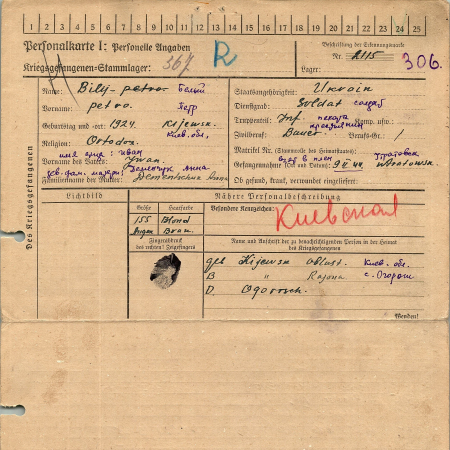 1 2 3 4 5 6 7 8 9 10 11 12 13 14 15 16 17 18 19 20 21 22 23 24 25
Personalkarte I: Personelle Angaben
Beschriftung der Erkennungsmarke
Kriegsgefangenen-Stammlager: 367 R
Nr. 2115 306.
Lager:
Des Kriegsgefangenen
Name: Bilij - petro Белый
Vorname: petro. Петр
Geburtstag und -ort: 1924. Kijewsk. Киев. обл.
Religion: Ortodox.
имя отца: иван
Vorname des Vaters: Iwan.
Familienname der Mutter: Dementschuk Anna
Staatsangehörigkeit: Ukrain
Dienstgrad: Soldat солдат
Truppenteil: Inf. пехота Komp. usw.:
крестьянин
Zivilberuf: Bauer. Berufs-Gr.: /
Matrikel Nr. (Stammrolle des Heimatstaates):
взят в плен
Gefangennahme (Ort und Datum):
Ob gesund, krank, verwundet eingeliefert:
Lichtbild
Nähere Personalbeschreibung
Größe Haarfarbe
155 Blond
Augen Braun.
Besondere Kennzeichen:
Киевская
Fingerabdruck
des rechten! Zeigefingers
Name und Anschrift der zu benachrichtigenden Person in der Heimat
des Kriegsgefangenen
geb Kijewsk oblast. Киев. обл.
B " Rajona с. Огорош
D. Ogorosch.
Wenden!